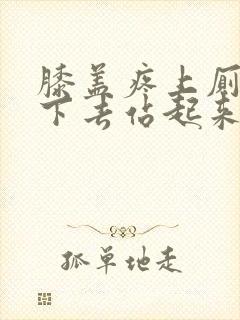 膝盖疼上厕
下去佔起来
孤单地走